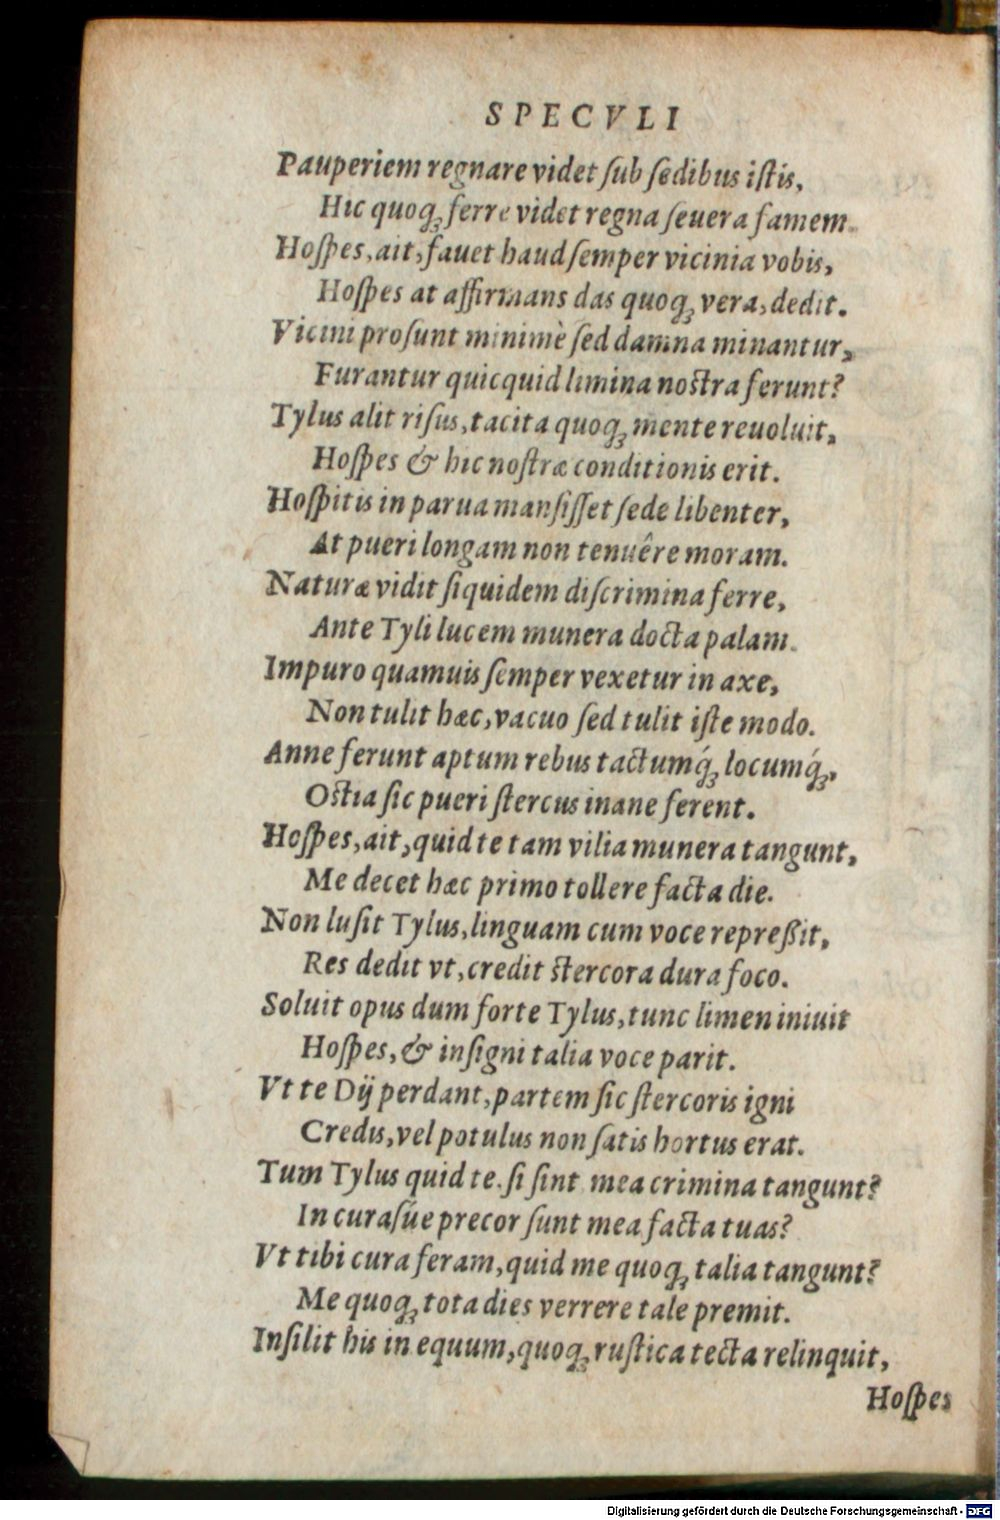 SPECVLI
Pauperiem regnare videt ſub ſedibus iſtis,
Hic quoqꝫ ferre videt regna ſeuera famem.
Hoſpes, ait, fauet haud ſemper vicinia vobis,
Hoſpes at affirmans das quoqꝫ vera, dedit.
Vicini proſunt minimè ſed damna minantur,
Furantur quicquid limina noſtra ferunt?
Tylus alit riſus, tacita quoqꝫ mente reuoluit,
Hoſpes & hic noſtræ conditionis erit.
Hoſpitis in parua manſiſſet ſede libenter,
At pueri longam non tenuêre moram.
Naturæ vidit ſiquidem diſcrimina ferre,
Ante Tyli lucem munera docta palam.
Impuro quamuis ſemper vexetur in axe,
Non tulit hæc, vacuo ſed tulit iſte modo.
Anne ferunt aptum rebus tactumq́ꝫ locumq́ꝫ,
Oſtia ſic pueri ſtercus inane ferent.
Hoſpes, ait, quid te tam vilia munera tangunt,
Me decet hæc primo tollere facta die.
Non luſit Tylus, linguam cum voce repreßit,
Res dedit vt, credit ſtercora dura foco.
Soluit opus dum forte Tylus, tunc limen iniuit
Hoſpes, & inſigni talia voce parit.
Vt te Dij perdant, partem ſic ſtercoris igni
Credis, vel potulus non ſatis hortus erat.
Tum Tylus quid te. ſi ſint mea crimina tangunt?
In curaſúe precor ſunt mea facta tuas?
Vt tibi cura feram, quid me quoqꝫ talia tangunt?
Me quoqꝫ tota dies verrere tale premit.
Inſilit his in equum, quoqꝫ ruſtica tecta relinquit,
Hoſpes
Digitalisierung gefördert durch die Deutsche Forschungsgemeinschaft - DFG